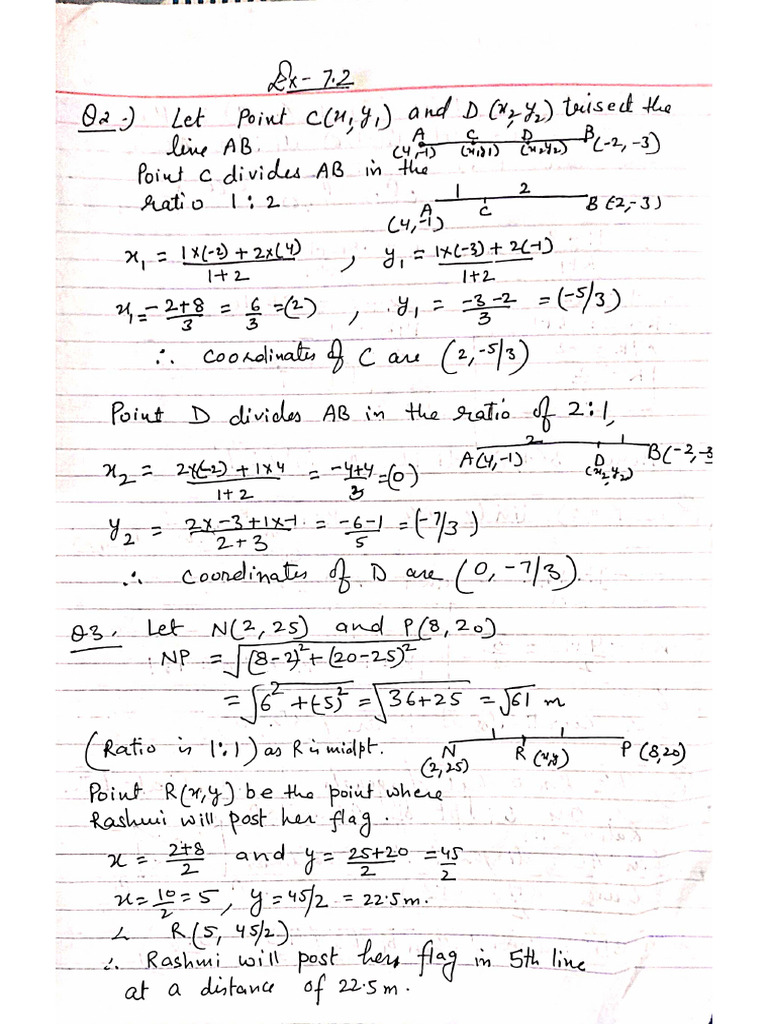 Ex - 7.2
Q2.) Let Point C(x₁, y₁) and D(x₂ y₂) trisect the
line AB.
A C D B
(4,-1) (x₁y₁) (x₂y₂) (-2, -3)
Point C divides AB in the
ratio 1:2
1 2
A C B(-2,-3)
(4,-1)
x₁ = 1×(-2) + 2×(4) / 1+2 , y₁ = 1×(-3) + 2(-1) / 1+2
x₁ = -2+8 / 3 = 6/3 = (2) , y₁ = -3-2 / 3 = (-5/3)
∴ coordinates of C are (2, -5/3)
Point D divides AB in the ratio of 2:1,
2 1
A(4,-1) D (x₂,y₂) B(-2,-3
x₂ = 2×(-2) + 1×4 / 1+2 = -4+4 / 3 = (0)
y₂ = 2×-3+1×-1 / 2+3 = -6-1 / 5 = (-7/3)
∴ coordinates of D are (0, -7/3).
Q3. Let N(2, 25) and P(8, 20)
NP = √(8-2)²+(20-25)²
= √6²+(-5)² = √36+25 = √61 m
(Ratio is 1:1) as R is midpt.
1 1
N (2,25) R (x,y) P (8,20)
Point R(x,y) be the point where
Rashmi will post her flag.
x = 2+8 / 2 and y = 25+20 / 2 = 45/2
x = 10/2 = 5, y = 45/2 = 22.5 m.
∴ R(5, 45/2)
∴ Rashmi will post her flag in 5th line
at a distance of 22.5 m.